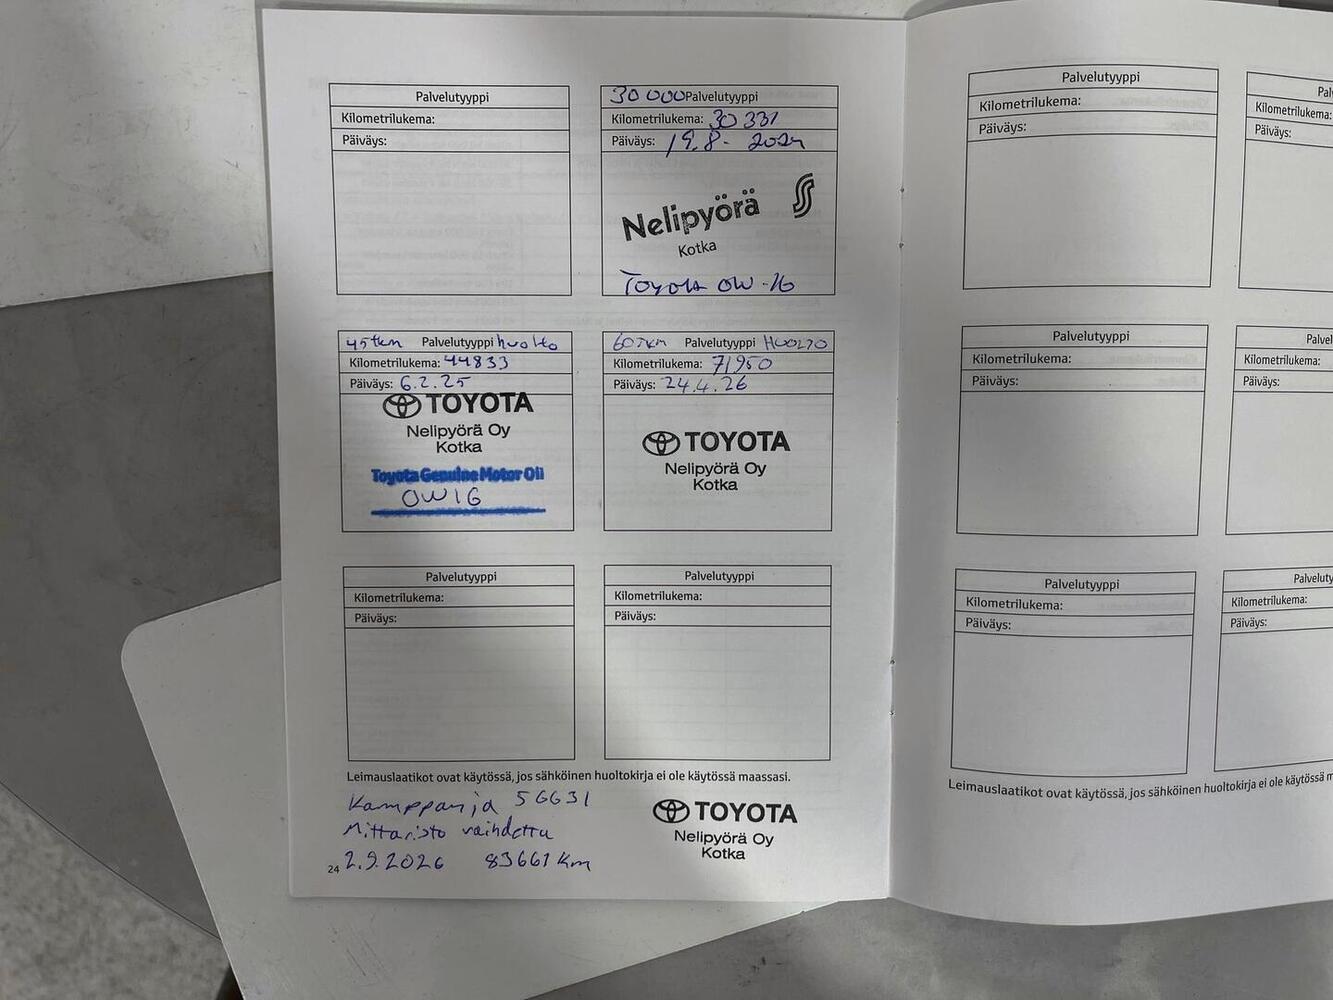 Palvelutyyppi
Kilometrilukema:
Päiväys:
30 000 Palvelutyyppi
Kilometrilukema: 30 331
Päiväys: 19.8. 2024
Nelipyörä S
Kotka
Toyota 0W-16
45tkm Palvelutyyppi huolto
Kilometrilukema: 44833
Päiväys: 6.2.25
TOYOTA
Nelipyörä Oy
Kotka
Toyota Genuine Motor Oil
0W16
60TKM Palvelutyyppi HUOLTO
Kilometrilukema: 71950
Päiväys: 24.4.26
TOYOTA
Nelipyörä Oy
Kotka
Palvelutyyppi
Kilometrilukema:
Päiväys:
Palvelutyyppi
Kilometrilukema:
Päiväys:
Leimauslaatikot ovat käytössä, jos sähköinen huoltokirja ei ole käytössä maassasi.
Kamppanja 56631
Mittaristo vaihdettu
2.9.2026 83661 km
TOYOTA
Nelipyörä Oy
Kotka
24
Palvelutyyppi
Kilometrilukema:
Päiväys:
Pal
Kilometrilukema:
Päiväys:
Palvelutyyppi
Kilometrilukema:
Päiväys:
Palvel
Kilometrilukema:
Päiväys:
Palvelutyyppi
Kilometrilukema:
Päiväys:
Palvelu
Kilometrilukema:
Päiväys:
Leimauslaatikot ovat käytössä, jos sähköinen huoltokirja ei ole käytössä m